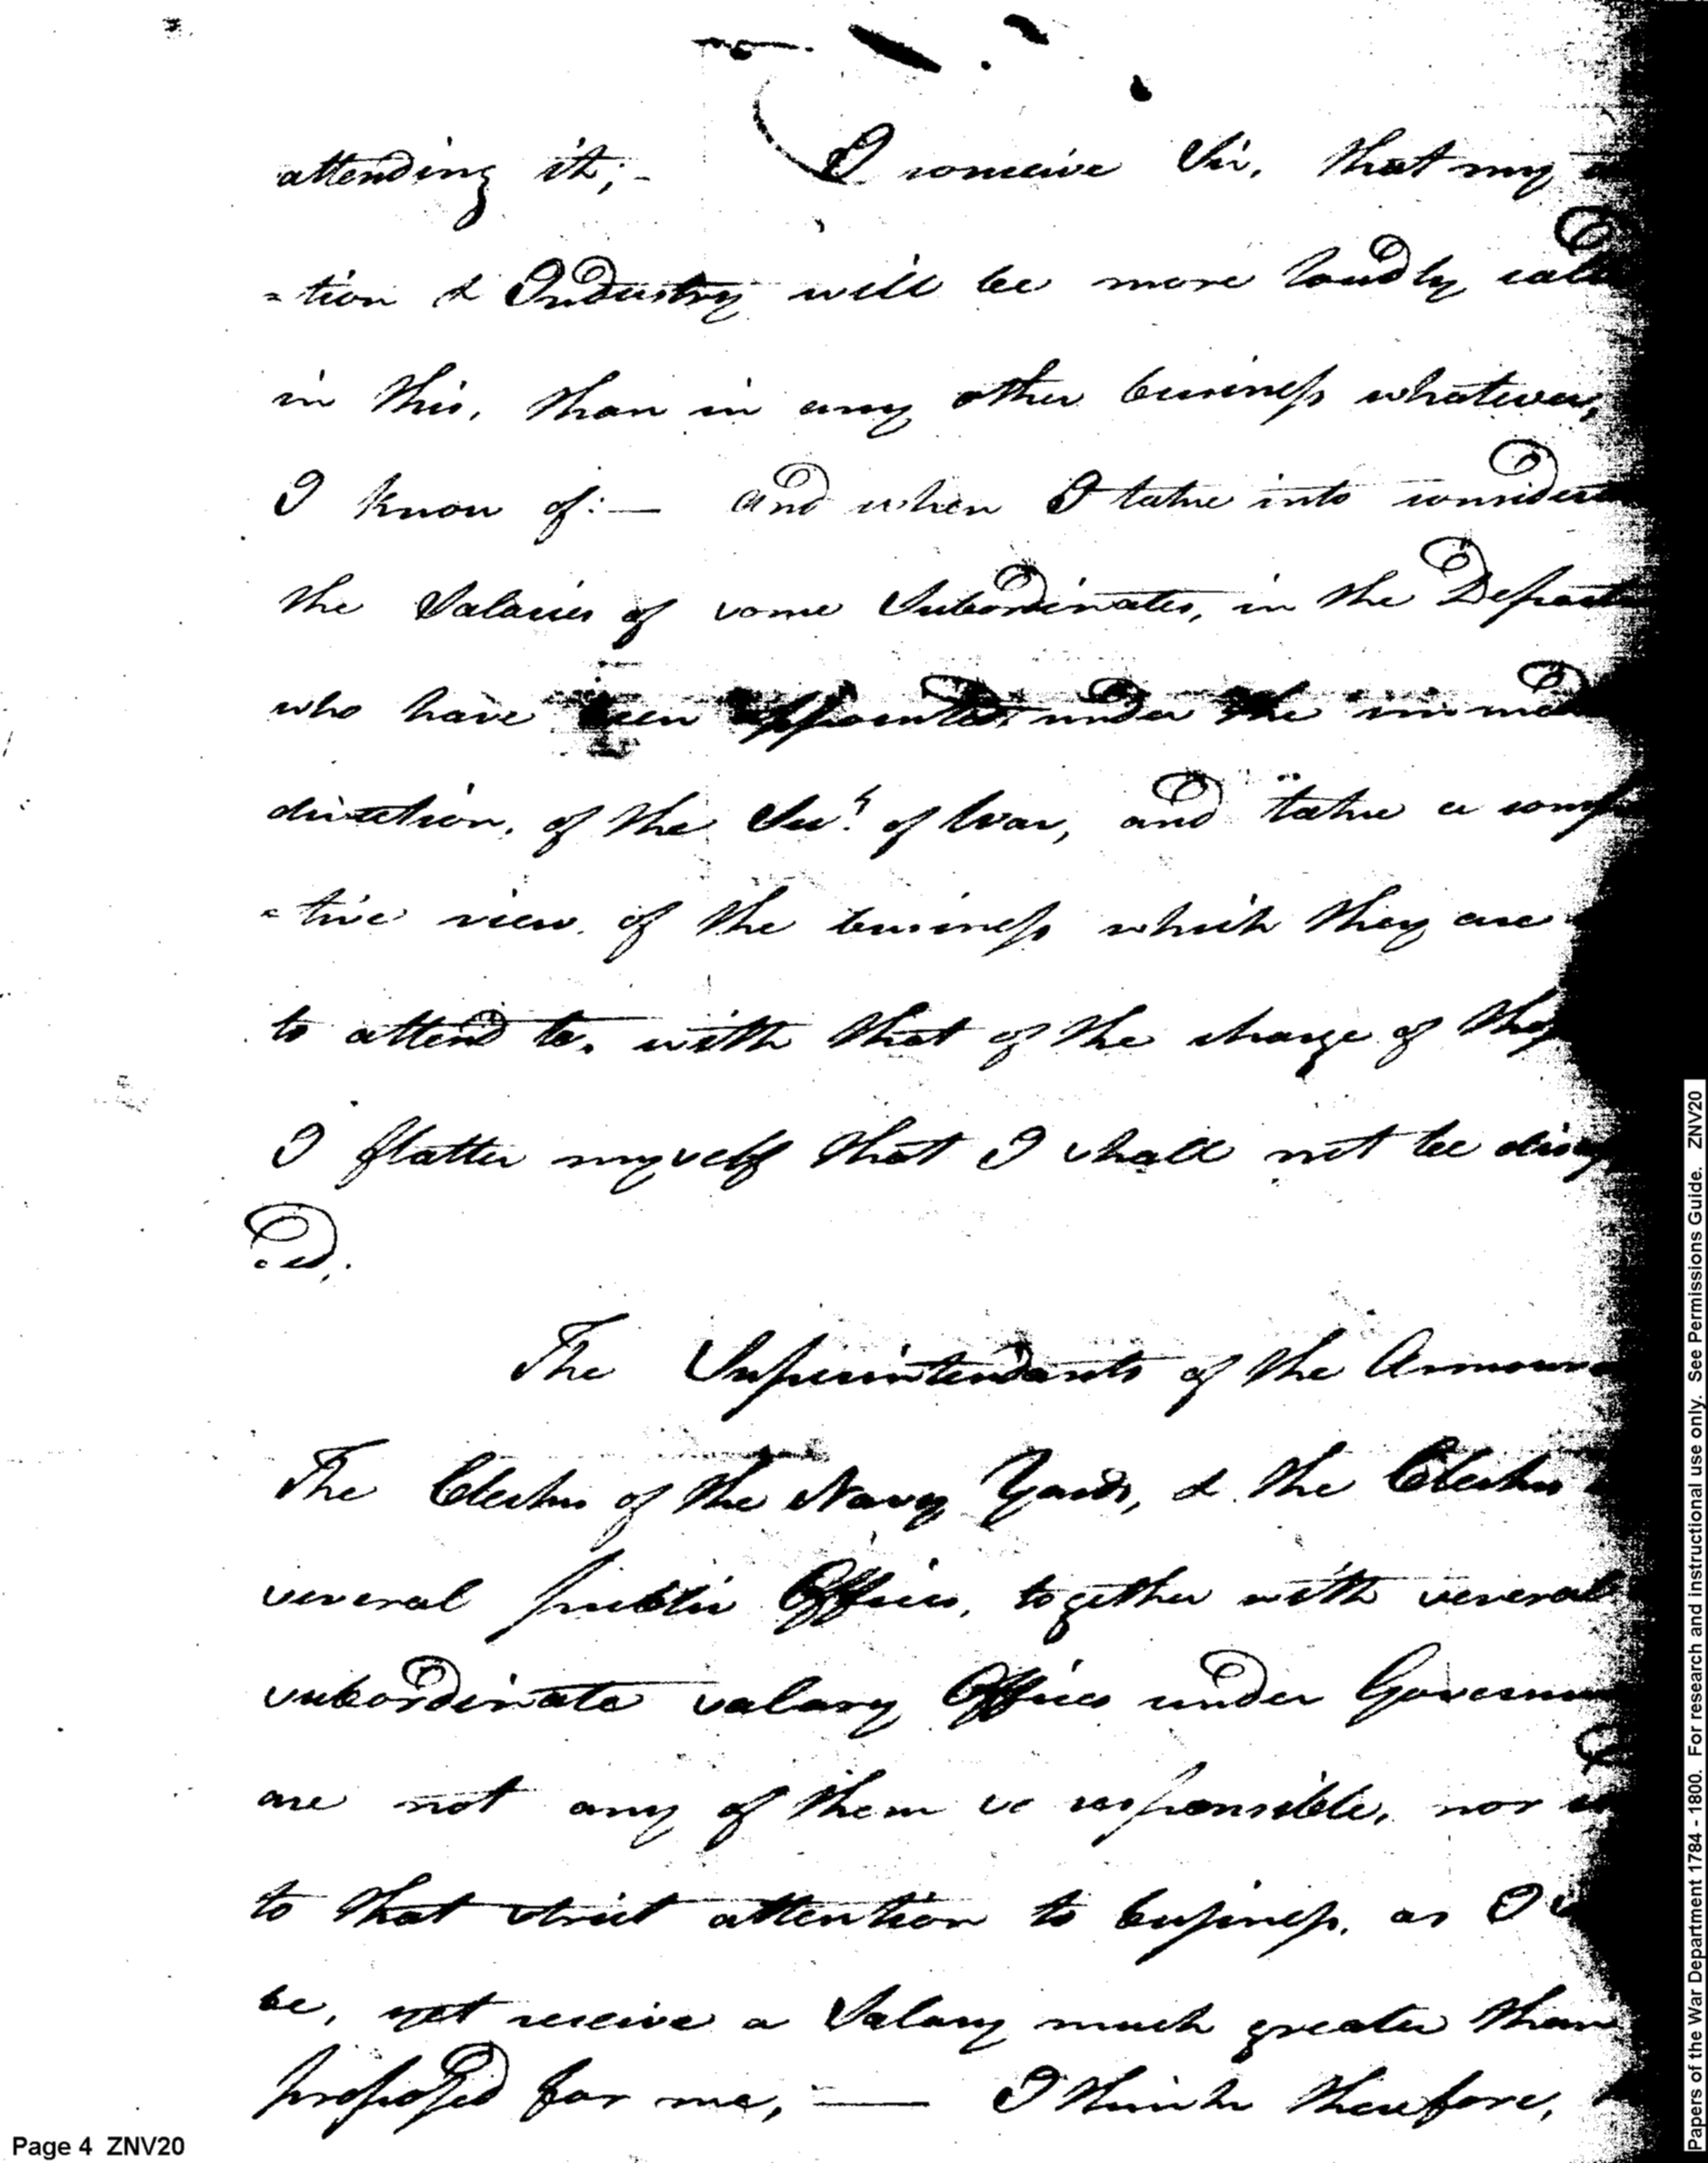 attending it;- I conceive Sir, that my
-tion & Industry will be more loudly
in this, than in any other business whatever,
I know of:— and when I take into
the Salaries of some Subordinates, in the
who have been appointed, under the
direction, of the Secy. of War, and take a
-tive view of the business which they are
to attend to, with that of the charge of
I flatter myself that I shall not be
-ed.
The Superintendants of the
The Clerks of the Navy Yards, & the Clerks
several public Offices, together with several
subordinate salary Offices under
are not any of them so responsible, nor
to that strict attention to business, as I
be, yet receive a Salary much greater than
proposed for me, — I think therefore,
Page 4 ZNV20
Papers of the War Department 1784 - 1800. For research and instructional use only. See Permissions Guide. ZNV20